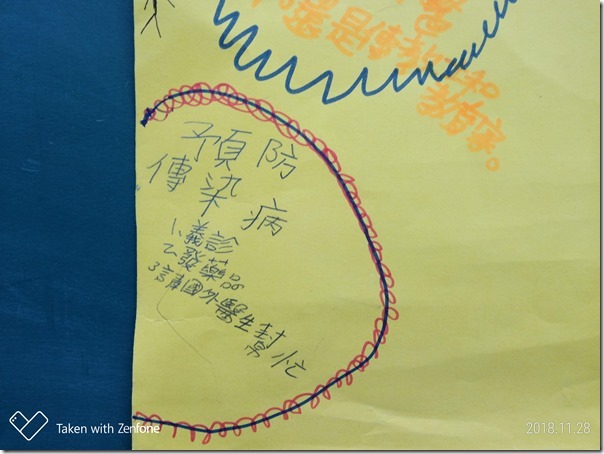 還是傳教士和
教育家。
預防
傳染病
1.義診
2.發藥品
3.請國外醫生幫忙
Taken with Zenfone
2018.11.28